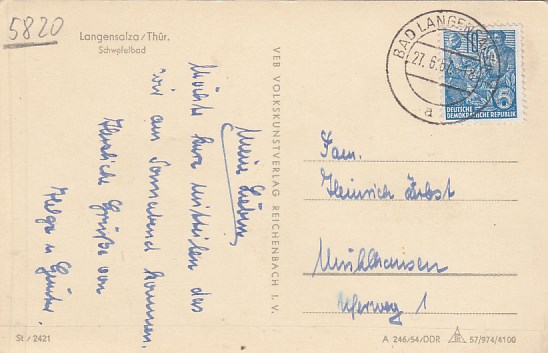 5820
Langensalza/Thür.
Schwefelbad
Meine Lieben
Möchte kurz mitteilen das
wir am Sonnabend kommen.
Herzliche Grüße von
Helga u Günter
VEB VOLKSKUNSTVERLAG REICHENBACH I. V.
BAD LANGENSALZA
27.6.
a
10
5
DEUTSCHE
DEMOKRATISCHE REPUBLIK
Fam.
Heinrich
Mühlhausen
Uferweg 1
St / 2421
A 246/54/DDR 57/974/4100